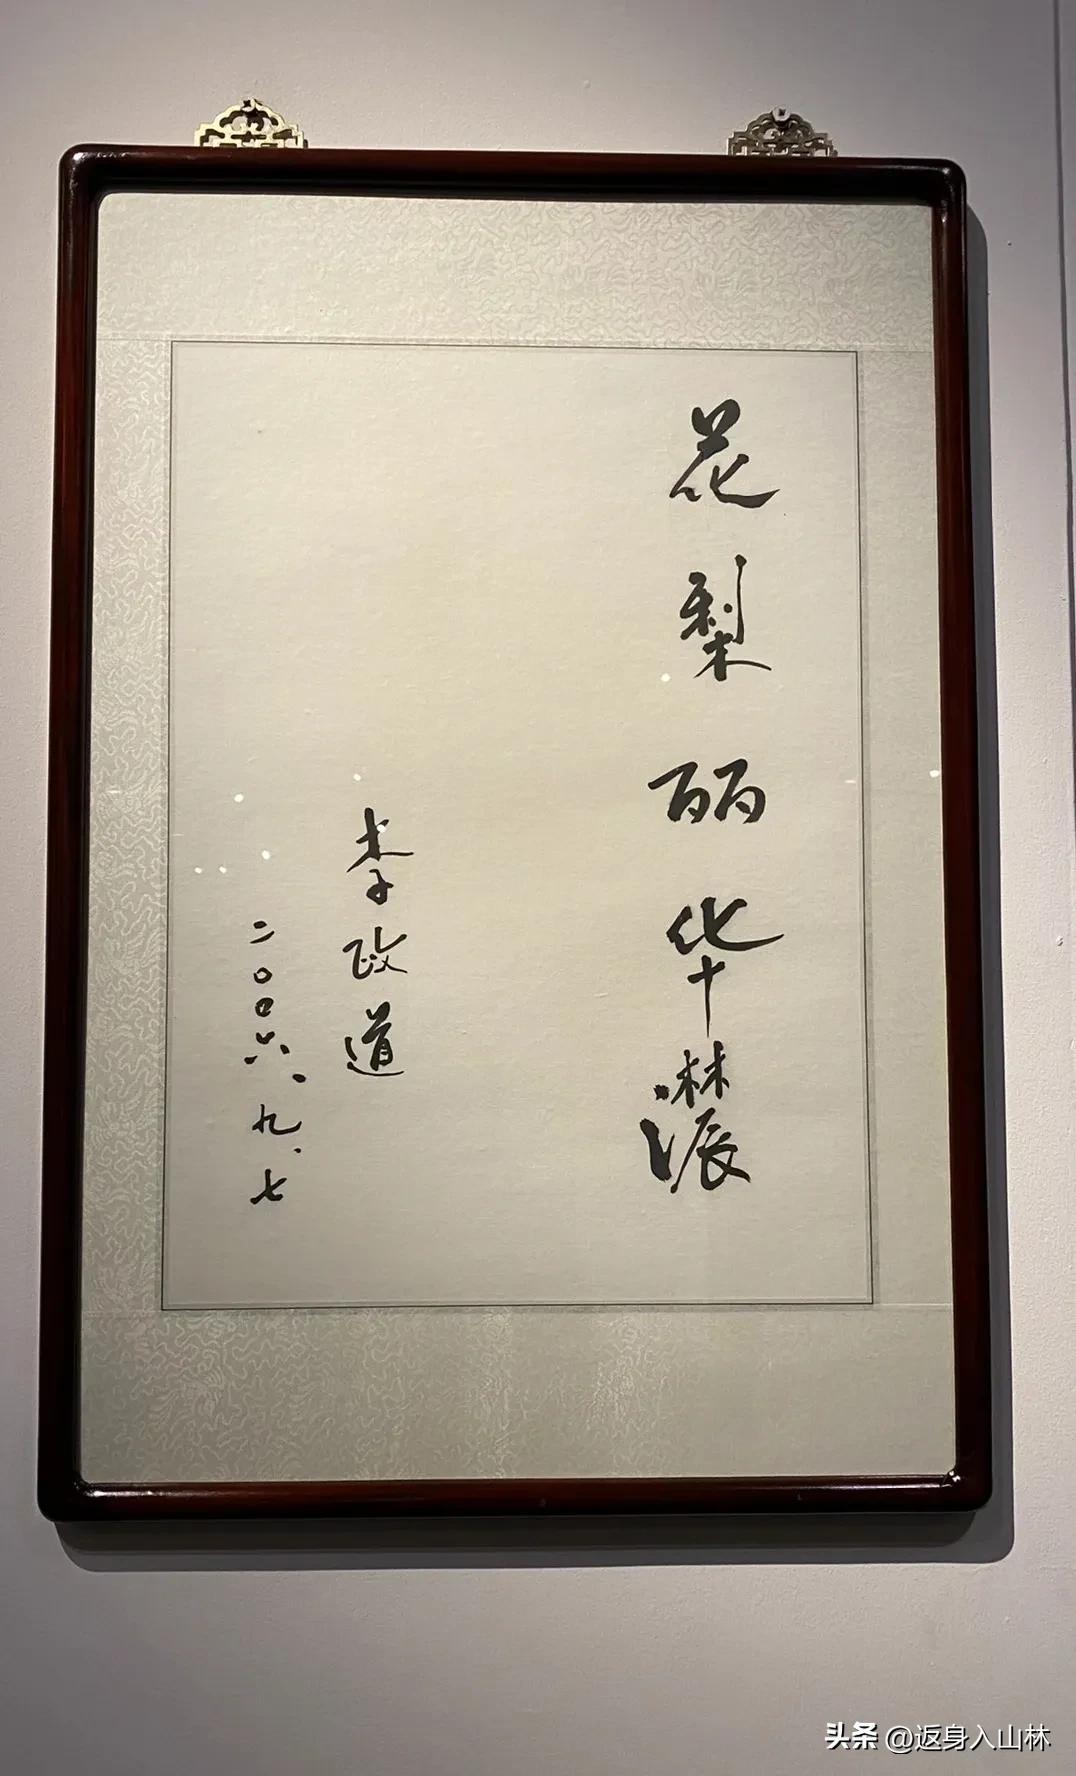 花梨丽华濃
李政道
二〇〇六、九、七
头条 @返身入山林